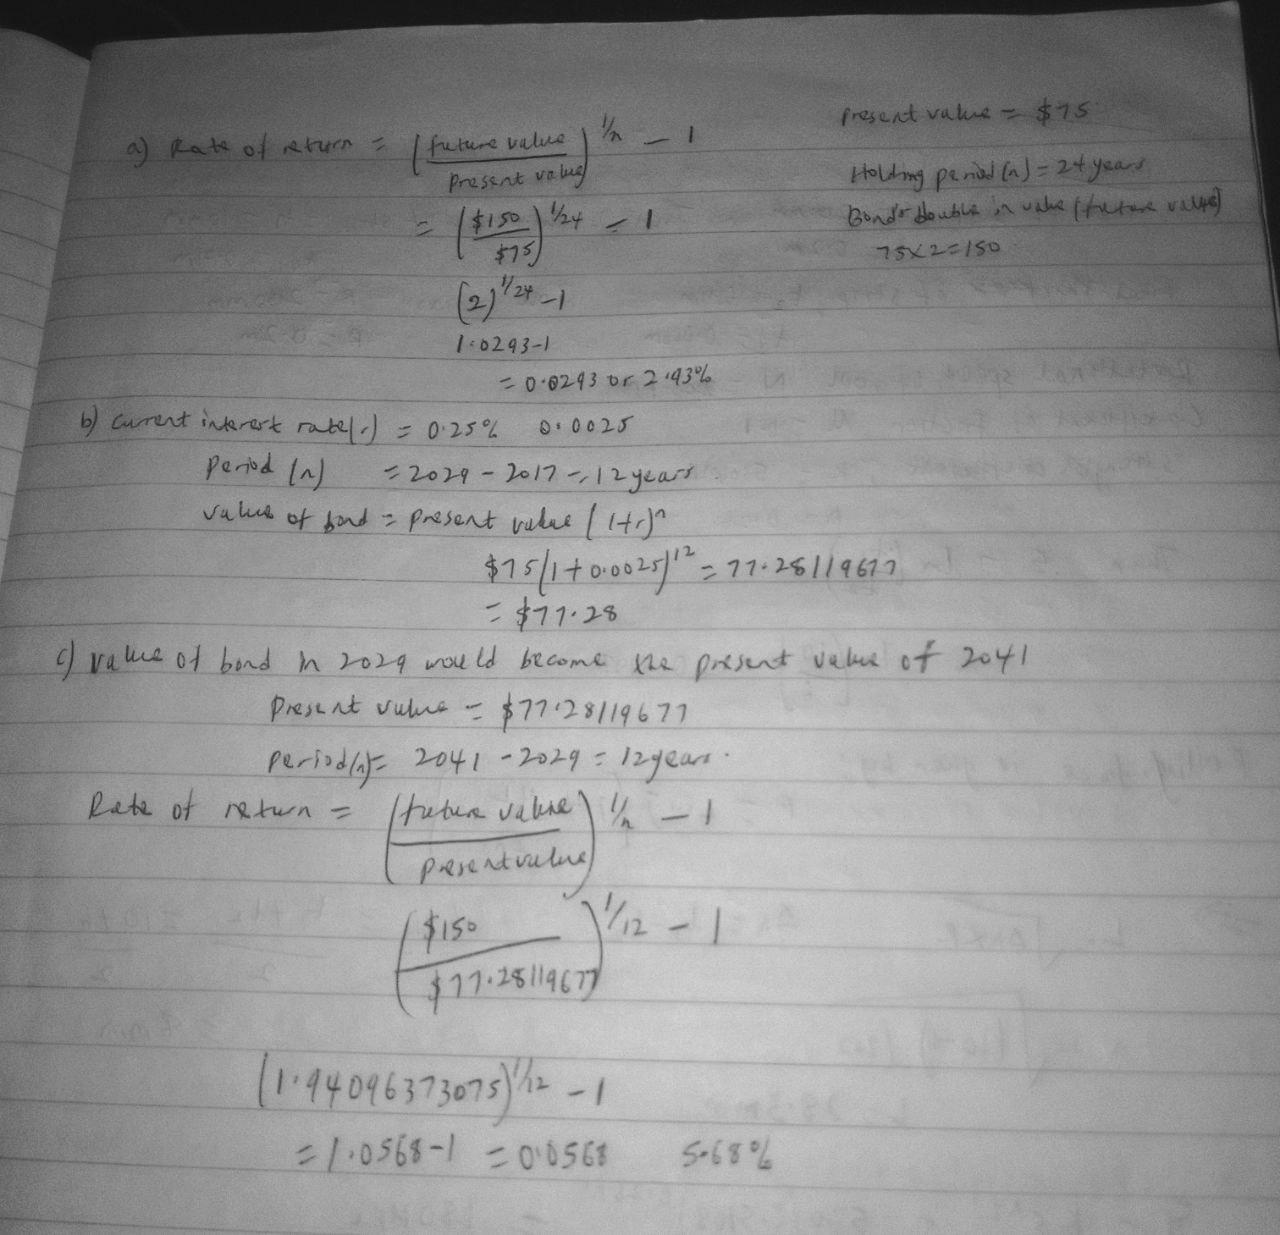 a) Rate of return = (future value / Present value)^1/n - 1
Present value = $75
Holding period (n) = 24 years
Bonds double in value (future value)
75×2=150
= ($150 / $75)^1/24 - 1
(2)^1/24 - 1
1.0293-1
= 0.0293 or 2.93%
b) current interest rate(r) = 0.25% 0.0025
Period (n) = 2029 - 2017 = 12 years
value of bond = present value (1+r)^n
$75(1+0.0025)^12 = 77.28119677
= $77.28
c) value of bond in 2029 would become the present value of 2041
Present value = $77.28119677
Period(n)= 2041 - 2029 = 12years.
Rate of return = (future value / present value)^1/n - 1
($150 / $77.28119677)^1/12 - 1
(1.94096373075)^1/12 - 1
= 1.0568-1 = 0.0568 5.68%